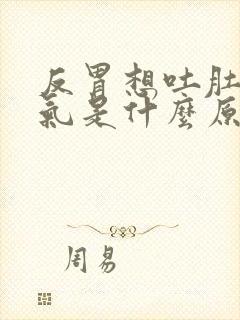 反胃想吐肚
氣是什麼原
周易